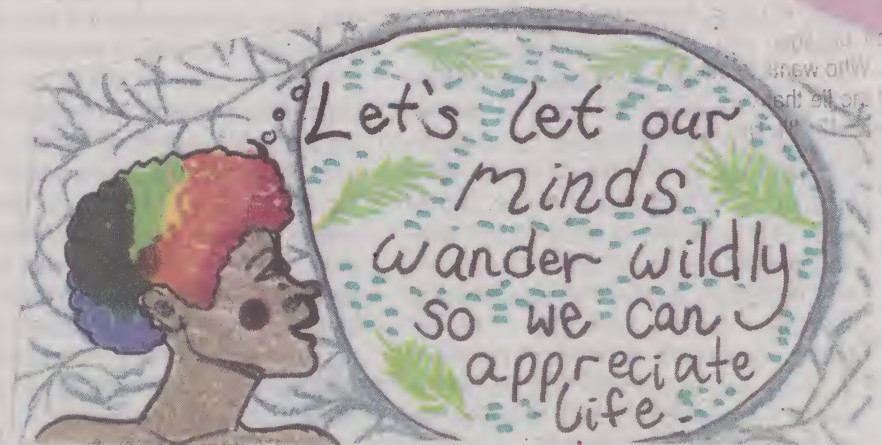 Let's let our
minds
wander wildly
so we can
appreciate
life.
Who wants